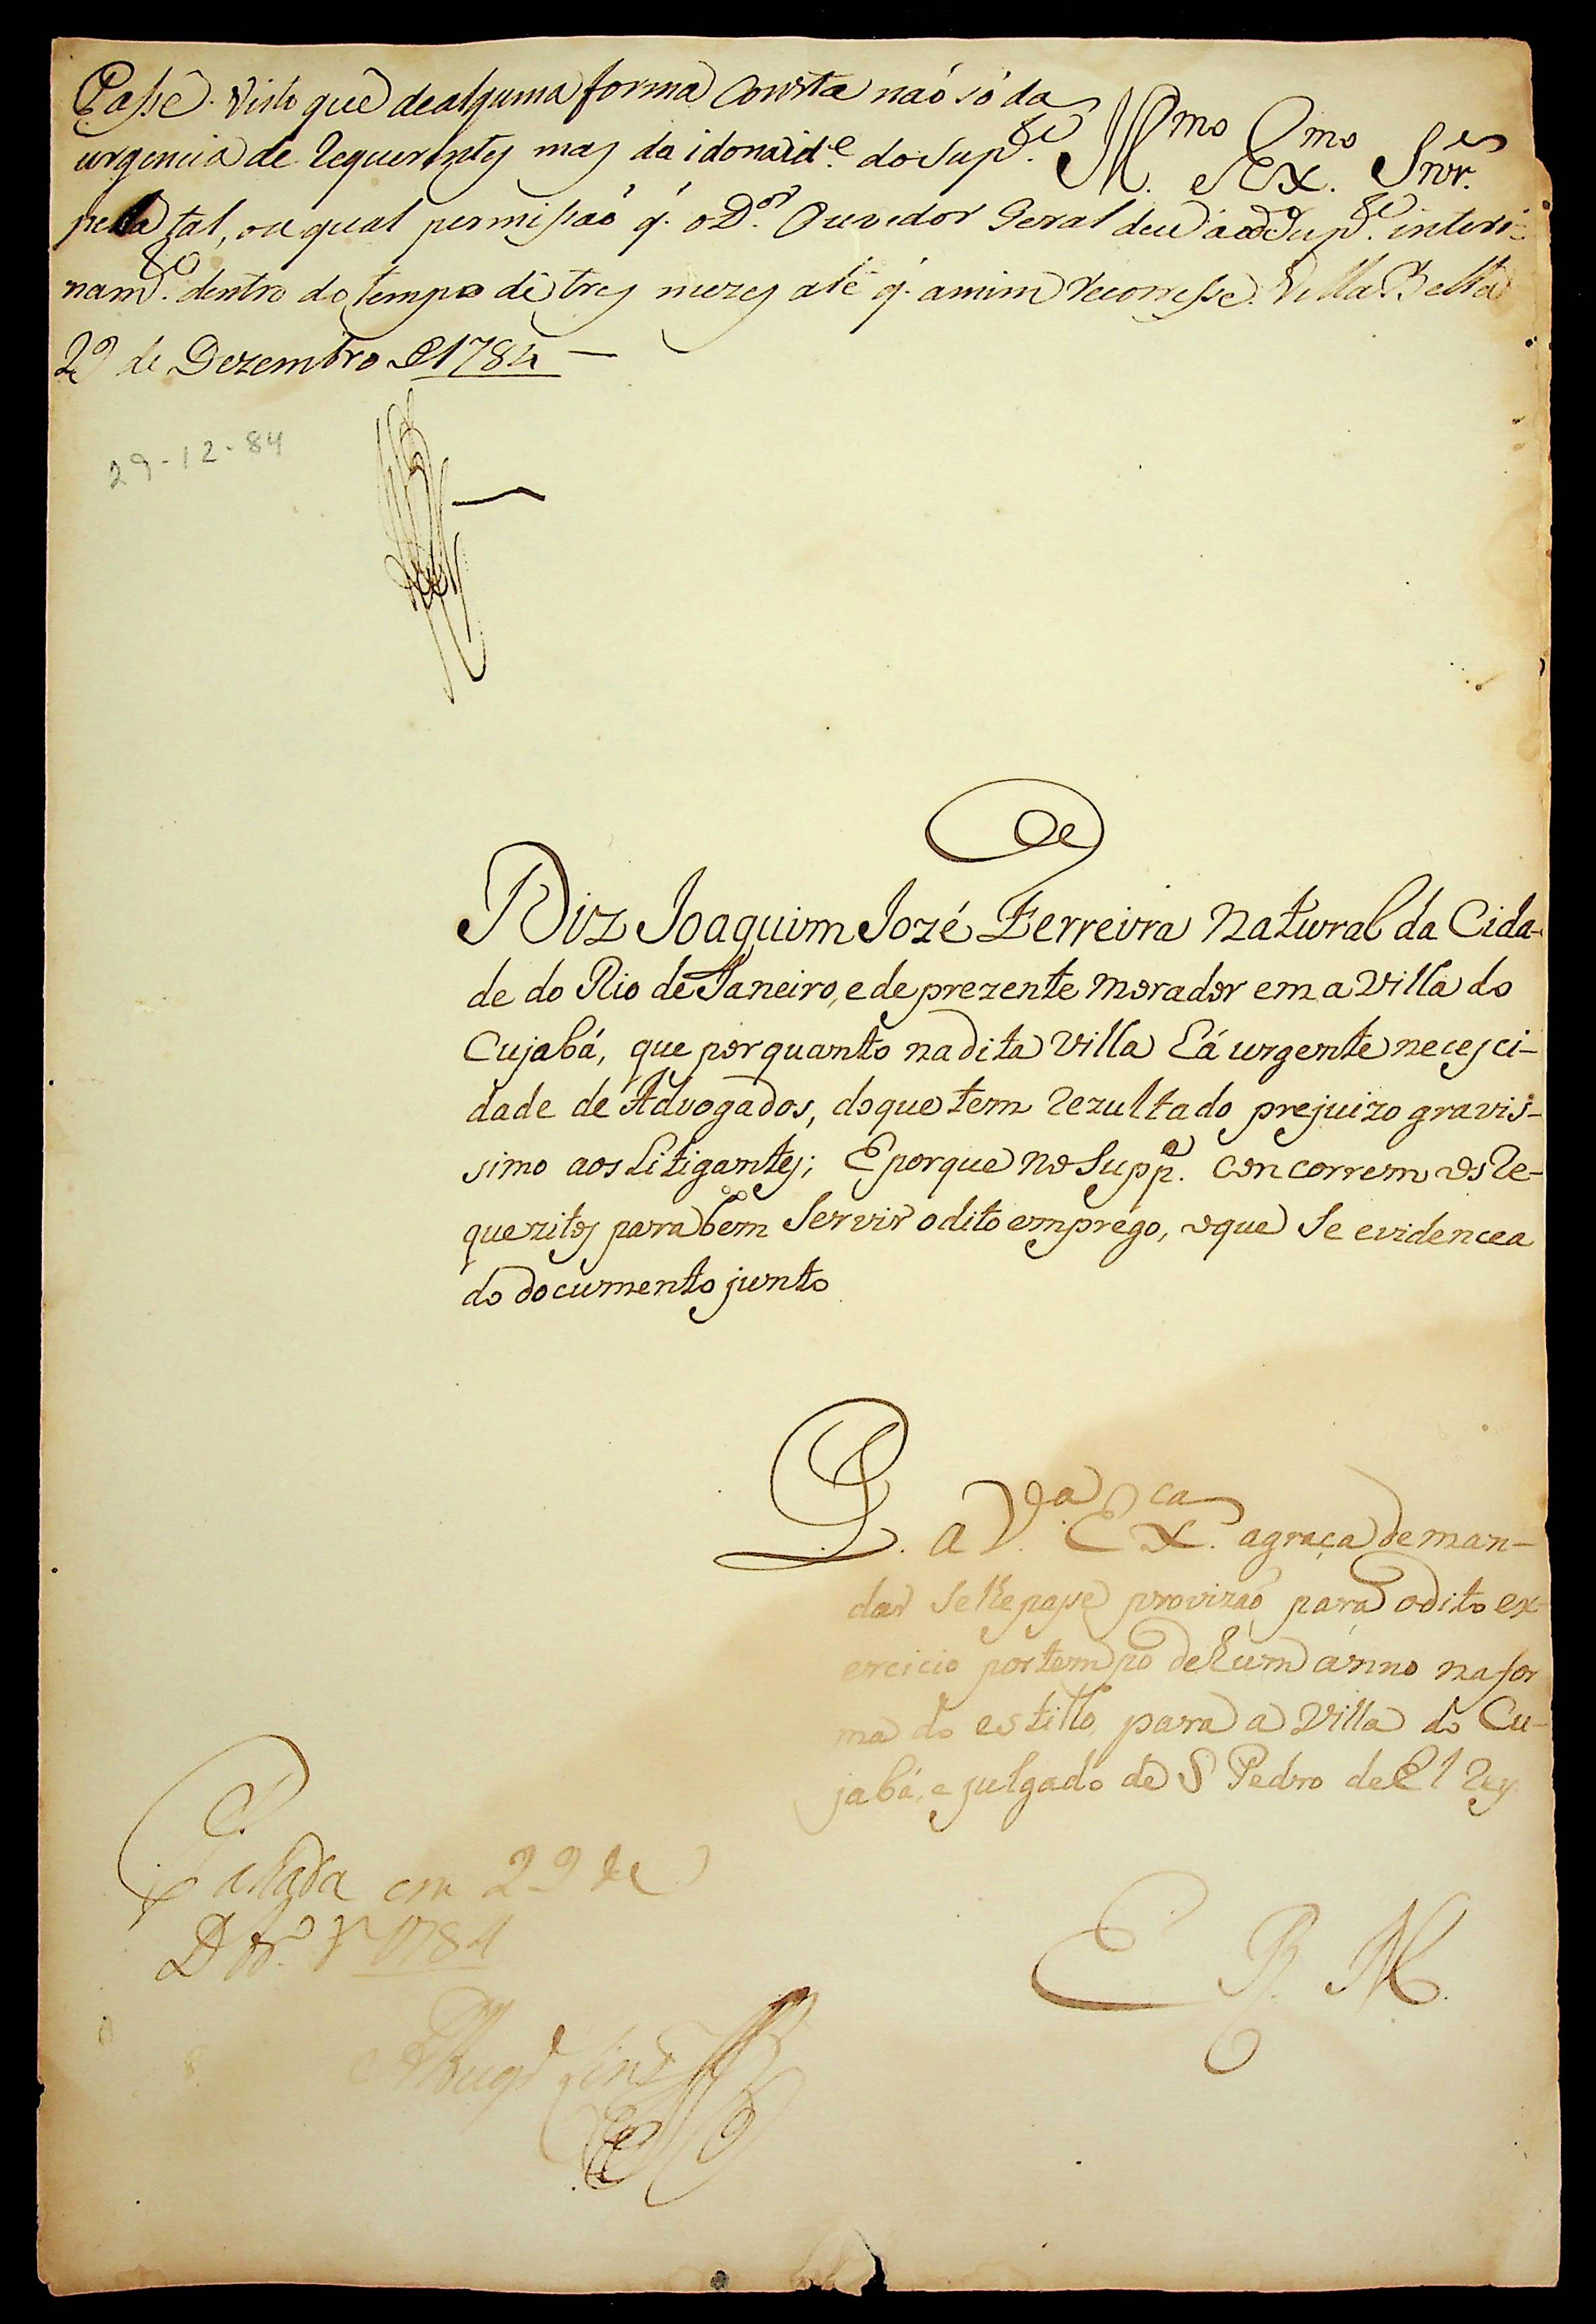 Passe. Visto que de alguma forma consta naõ só da
urgencia de requerentes mas da idonaid.e do Sup.te
pella tal, ou qual permissaõ q. o D.or Ouvedor Geral deu áo Sup.te interi-
nam.te dentro do tempo de tres mezes até q. amim recorresse. Villa Bella
29 de Dezembro de 1784
Ill.mo e Ex.mo Snr.
29-12-84
Diz Joaquim Jozé Ferreira natural da Cida-
de do Rio de Janeiro, e de prezente morador em a Villa do
Cujabá, que porquanto na dita Villa há urgente necesci-
dade de Advogados, do que tem rezultado prejuizo gravis-
simo aos Litigantes; E porque no Supp.e concorrem os re-
quezitos para bem servir o dito emprego, o que se evidencea
do documento junto
P. a V.a Ex.ca a graça de man-
dar se lhe passe provizaõ para o dito ex-
ercicio por tempo de hum anno na for
ma do estillo, para a Villa do Cu-
jabá, e julgado de S Pedro de El Rey
E R. M.
Passada em 29 de
Dbr.o de 1784